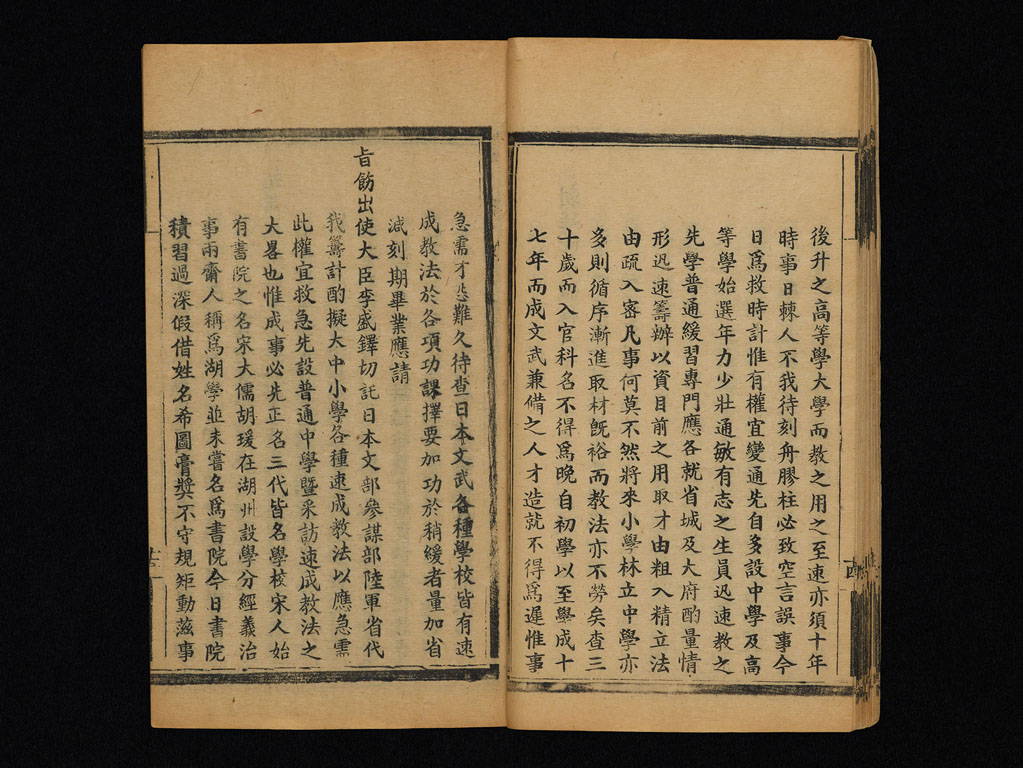 後升之高等學大學而教之用之至速亦須十年
時事日棘人不我待刻舟膠柱必致空言誤事今
日爲救時計惟有權宜變通先自多設中學及高
等學始選年力少壯通敏有志之生員迅速教之
先學普通緩習專門應各就省城及大府酌量情
形迅速籌辦以資目前之用取才由粗入精立法
由疏入密凡事何莫不然將來小學林立中學亦
多則循序漸進取材旣裕而教法亦不勞矣查三
十歲而入官科名不得爲晚自初學以至學成十
七年而成文武兼備之人才造就不得爲遲惟事
急需才恐難久待查日本文武各種學校皆有速
成教法於各項功課擇要加功於稍緩者量加省
減刻期畢業應請
旨飭出使大臣李盛鐸切託日本文部參謀部陸軍省代
我籌計酌擬大中小學各種速成教法以應急需
此權宜救急先設普通中學暨采訪速成教法之
大畧也惟成事必先正名三代皆名學校宋人始
有書院之名宋大儒胡瑗在湖州設學分經義治
事兩齋人稱爲湖學並未嘗名爲書院今日書院
積習過深假借姓名希圖膏獎不守規矩動滋事